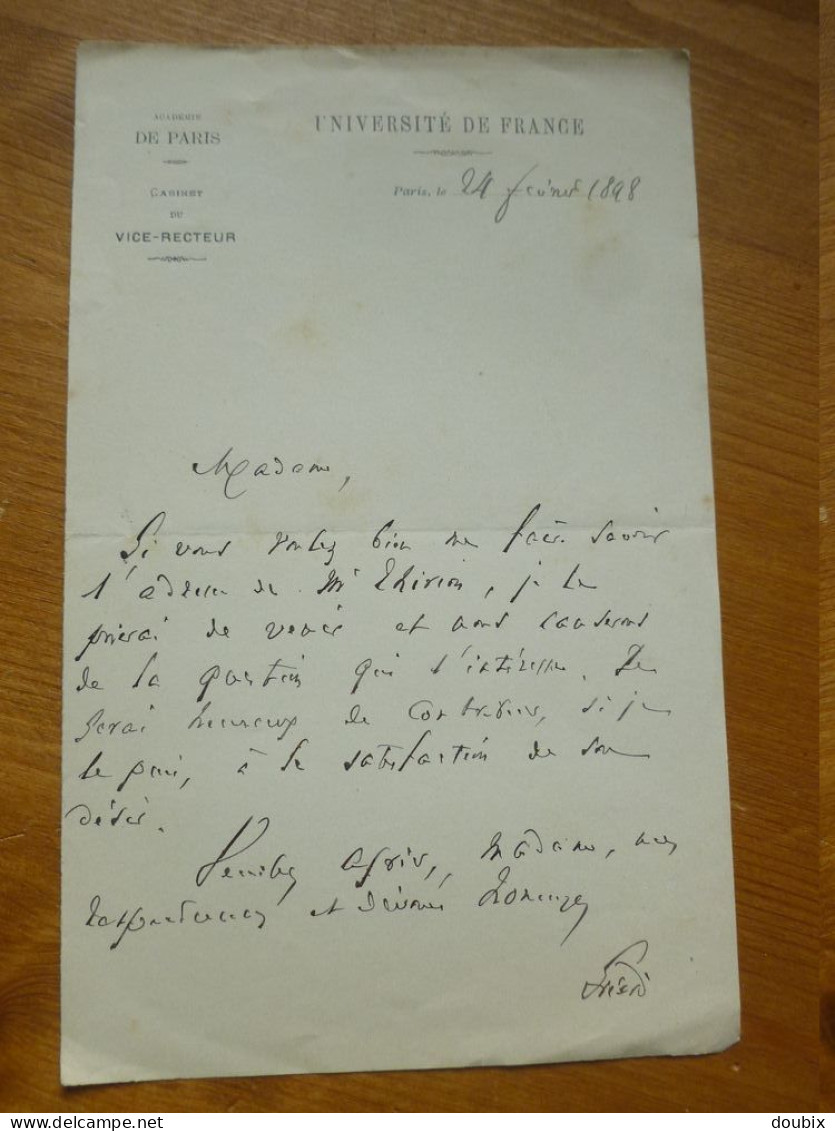 ACADÉMIE
DE PARIS
CABINET
DU
VICE-RECTEUR
UNIVERSITÉ DE FRANCE
Paris, le 24 février 1898
Madame,
Si vous voulez bien me faire savoir
l'adresse de Mr Thirion, je le
prierai de venir et nous causerons
de la question qui l'intéresse. Je
serai heureux de contribuer, si je
le puis, à la satisfaction de son
désir.
Veuillez agréer, Madame, mes
respectueux et dévoués hommages
Gréard
doubix